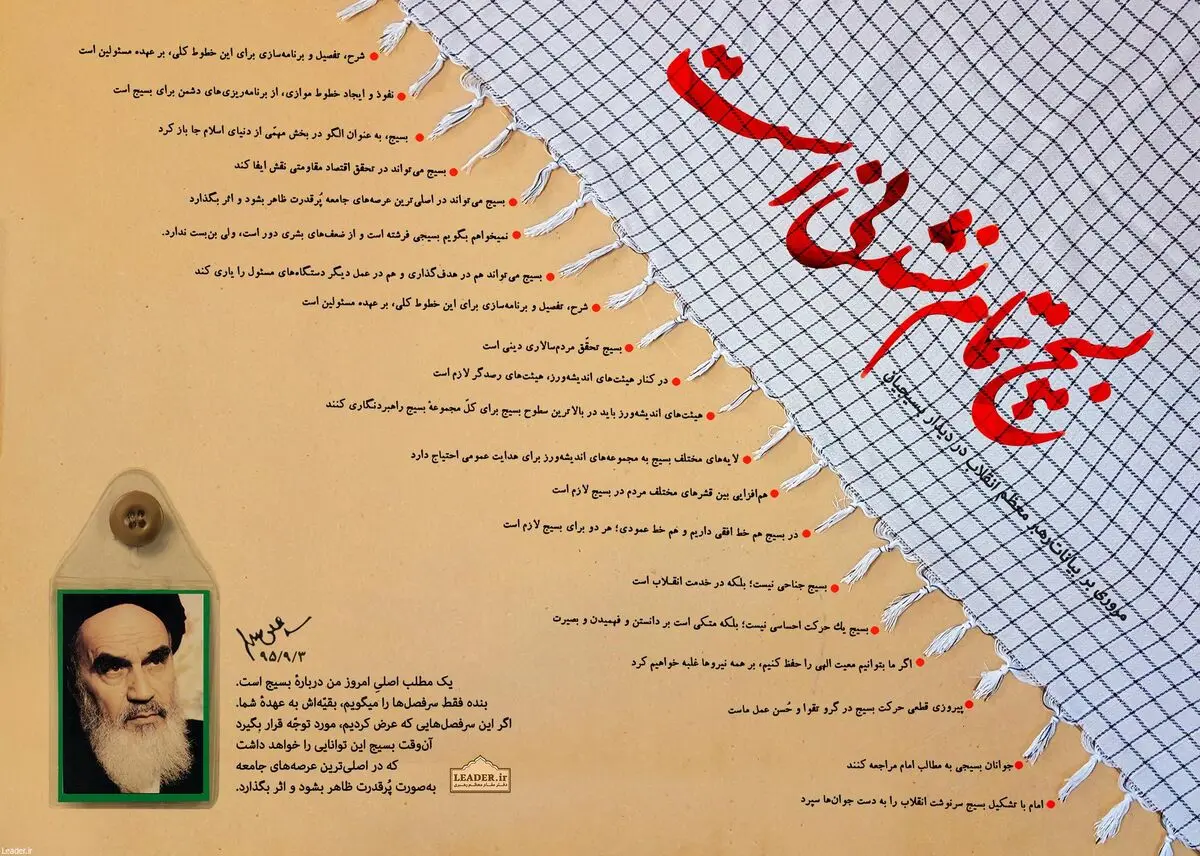 بسیج تمام‌نشدنی است
مروری بر بیانات رهبر معظم انقلاب در دیدار بسیجیان
شرح، تفصیل و برنامه‌سازی برای این خطوط کلی، بر عهده مسئولین است
نفوذ و ایجاد خطوط موازی، از برنامه‌ریزی‌های دشمن برای بسیج است
بسیج، به عنوان الگو در بخش مهمّی از دنیای اسلام جا باز کرد
بسیج می‌تواند در تحقق اقتصاد مقاومتی نقش ایفا کند
بسیج می‌تواند در اصلی‌ترین عرصه‌های جامعه پُرقدرت ظاهر بشود و اثر بگذارد
نمیخواهم بگویم بسیجی فرشته است و از ضعف‌های بشری دور است، ولی بن‌بست ندارد.
بسیج می‌تواند هم در هدف‌گذاری و هم در عمل دیگر دستگاه‌های مسئول را یاری کند
شرح، تفصیل و برنامه‌سازی برای این خطوط کلی، بر عهده مسئولین است
بسیج تحقّق مردم‌سالاری دینی است
در کنار هیئت‌های اندیشه‌ورز، هیئت‌های رصدگر لازم است
هیئت‌های اندیشه‌ورز باید در بالاترین سطوح بسیج برای کلّ مجموعهٔ بسیج راهبردنگاری کنند
لایه‌های مختلف بسیج به مجموعه‌های اندیشه‌ورز برای هدایت عمومی احتیاج دارد
هم‌افزایی بین قشرهای مختلف مردم در بسیج لازم است
در بسیج هم خط افقی داریم و هم خط عمودی؛ هر دو برای بسیج لازم است
بسیج جناحی نیست؛ بلکه در خدمت انقلاب است
بسیج یك حرکت احساسی نیست؛ بلکه متکی است بر دانستن و فهمیدن و بصیرت
اگر ما بتوانیم معیت الهی را حفظ کنیم، بر همه نیروها غلبه خواهیم کرد
پیروزی قطعی حرکت بسیج در گرو تقوا و حُسن عمل ماست
جوانان بسیجی به مطالب امام مراجعه کنند
امام با تشکیل بسیج سرنوشت انقلاب را به دست جوان‌ها سپرد
۹۵/۹/۳
یک مطلب اصلیِ امروز من دربارهٔ بسیج است.
بنده فقط سرفصل‌ها را میگویم، بقیّه‌اش به عهدهٔ شما.
اگر این سرفصل‌هایی که عرض کردیم، مورد توجّه قرار بگیرد
آن‌وقت بسیج این توانایی را خواهد داشت
که در اصلی‌ترین عرصه‌های جامعه
به‌صورت پُرقدرت ظاهر بشود و اثر بگذارد.
LEADER.ir
دفتر مقام معظم رهبری
Leader.ir